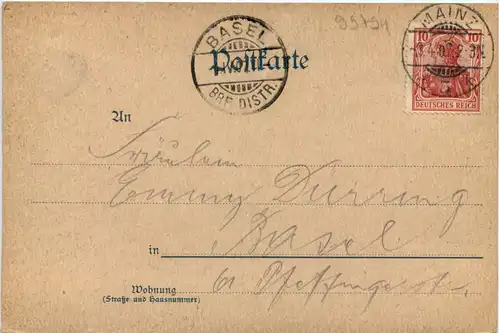 95794
BASEL
BRF. DISTR.
MAINZ
10 10
DEUTSCHES REICH
Postkarte
An
Fräulein
Emmy Dürring
in Basel
Wohnung
(Straße und Hausnummer)